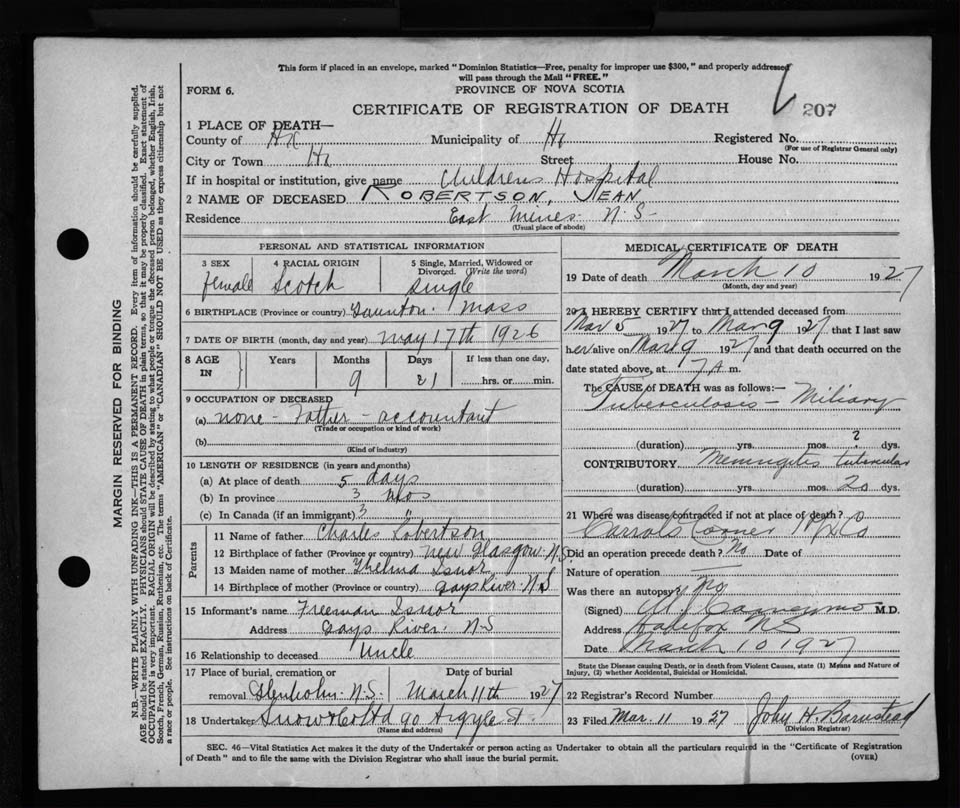 This form if placed in an envelope, marked "Dominion Statistics—Free, penalty for improper use $300," and properly addressed
will pass through the Mail "FREE."
FORM 6.
PROVINCE OF NOVA SCOTIA
CERTIFICATE OF REGISTRATION OF DEATH
207
1 PLACE OF DEATH—
County of Hx Municipality of Hx Registered No.
(For use of Registrar General only)
City or Town Hx Street House No.
If in hospital or institution, give name Childrens Hospital
2 NAME OF DECEASED ROBERTSON, JEAN
Residence East Mines N.S—
(Usual place of abode)
PERSONAL AND STATISTICAL INFORMATION
3 SEX 4 RACIAL ORIGIN 5 Single, Married, Widowed or
Divorced. (Write the word)
female Scotch single
6 BIRTHPLACE (Province or country) Taunton. Mass
7 DATE OF BIRTH (month, day and year) May 17th 1926
8 AGE IN Years Months Days If less than one day,
9 21 hrs. or min.
9 OCCUPATION OF DECEASED
(a) none - Father - accountant
(Trade or occupation or kind of work)
(b)
(Kind of industry)
10 LENGTH OF RESIDENCE (in years and months)
(a) At place of death 5 days
(b) In province 3 mos
(c) In Canada (if an immigrant) 3 "
Parents
11 Name of father Charles Robertson
12 Birthplace of father (Province or country) New Glasgow. N.S.
13 Maiden name of mother Thelma Isnor
14 Birthplace of mother (Province or country) Gays River. N.S
15 Informant's name Freeman Isnor
Address Gays River. N-S
16 Relationship to deceased Uncle
17 Place of burial, cremation or Date of burial
removal Glenholm. N.S. March 11th 1927
18 Undertaker Snow & Co Ltd 90 Argyle St.
(Name and address)
MEDICAL CERTIFICATE OF DEATH
19 Date of death March 10 1927
(Month, day and year)
20 I HEREBY CERTIFY that I attended deceased from
Mar 5 1927 to Mar 9 1927 that I last saw
her alive on Mar 9 1927 and that death occurred on the
date stated above, at 7 A m.
The CAUSE of DEATH was as follows:—
Tuberculosis - Miliary
(duration) yrs. mos. ? dys.
CONTRIBUTORY Meningitis tubercular
(duration) yrs. mos. 20 dys.
21 Where was disease contracted if not at place of death?
Carrols Corner Hx Co
Did an operation precede death? No Date of
Nature of operation —
Was there an autopsy? No
(Signed) M.D.
Address Halifax NS
Date March 10 1927
State the Disease causing Death, or in death from Violent Causes, state (1) Means and Nature of
Injury, (2) whether Accidental, Suicidal or Homicidal.
22 Registrar's Record Number
23 Filed Mar. 11 1927 John H. Barnstead
(Division Registrar)
SEC. 46—Vital Statistics Act makes it the duty of the Undertaker or person acting as Undertaker to obtain all the particulars required in the "Certificate of Registration
of Death" and to file the same with the Division Registrar who shall issue the burial permit.
(OVER)
MARGIN RESERVED FOR BINDING
N.B.—WRITE PLAINLY WITH UNFADING INK—THIS IS A PERMANENT RECORD. Every item of information should be carefully supplied.
AGE should be stated EXACTLY. PHYSICIANS should STATE CAUSE OF DEATH in plain terms, so that it may be properly classified. Exact statement of
OCCUPATION is very important. RACIAL ORIGIN will be described by stating to what people or tongue the deceased person belonged, whether English, Irish,
Scotch, French, German, Russian, Ruthenian, etc. The terms "AMERICAN" or "CANADIAN" SHOULD NOT BE USED as they express citizenship but not
a race or people. See instructions on back of Certificate.